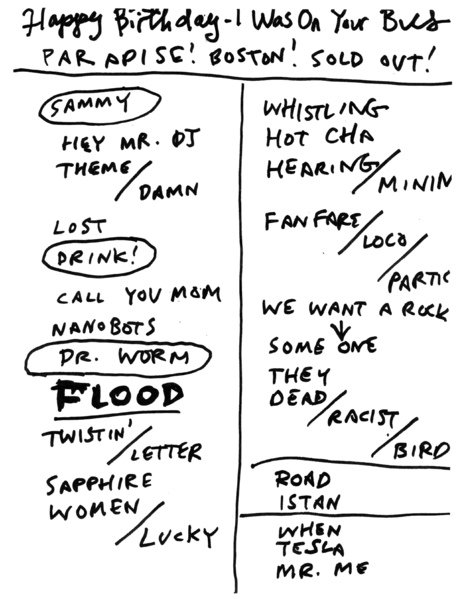 Happy Birthday - I Was On Your Bus
PARADISE! BOSTON! SOLD OUT!
SAMMY
HEY MR. DJ
THEME/
DAMN
LOST
DRINK!
CALL YOU MOM
NANOBOTS
DR. WORM
FLOOD
TWISTIN'/
LETTER
SAPPHIRE
WOMEN/
LUCKY
WHISTLING
HOT CHA
HEARING/
MININ
FANFARE/
LOCO/
PARTIC
WE WANT A ROCK
SOME ONE
THEY
DEAD/
RACIST/
BIRD
ROAD
ISTAN
WHEN
TESLA
MR. ME